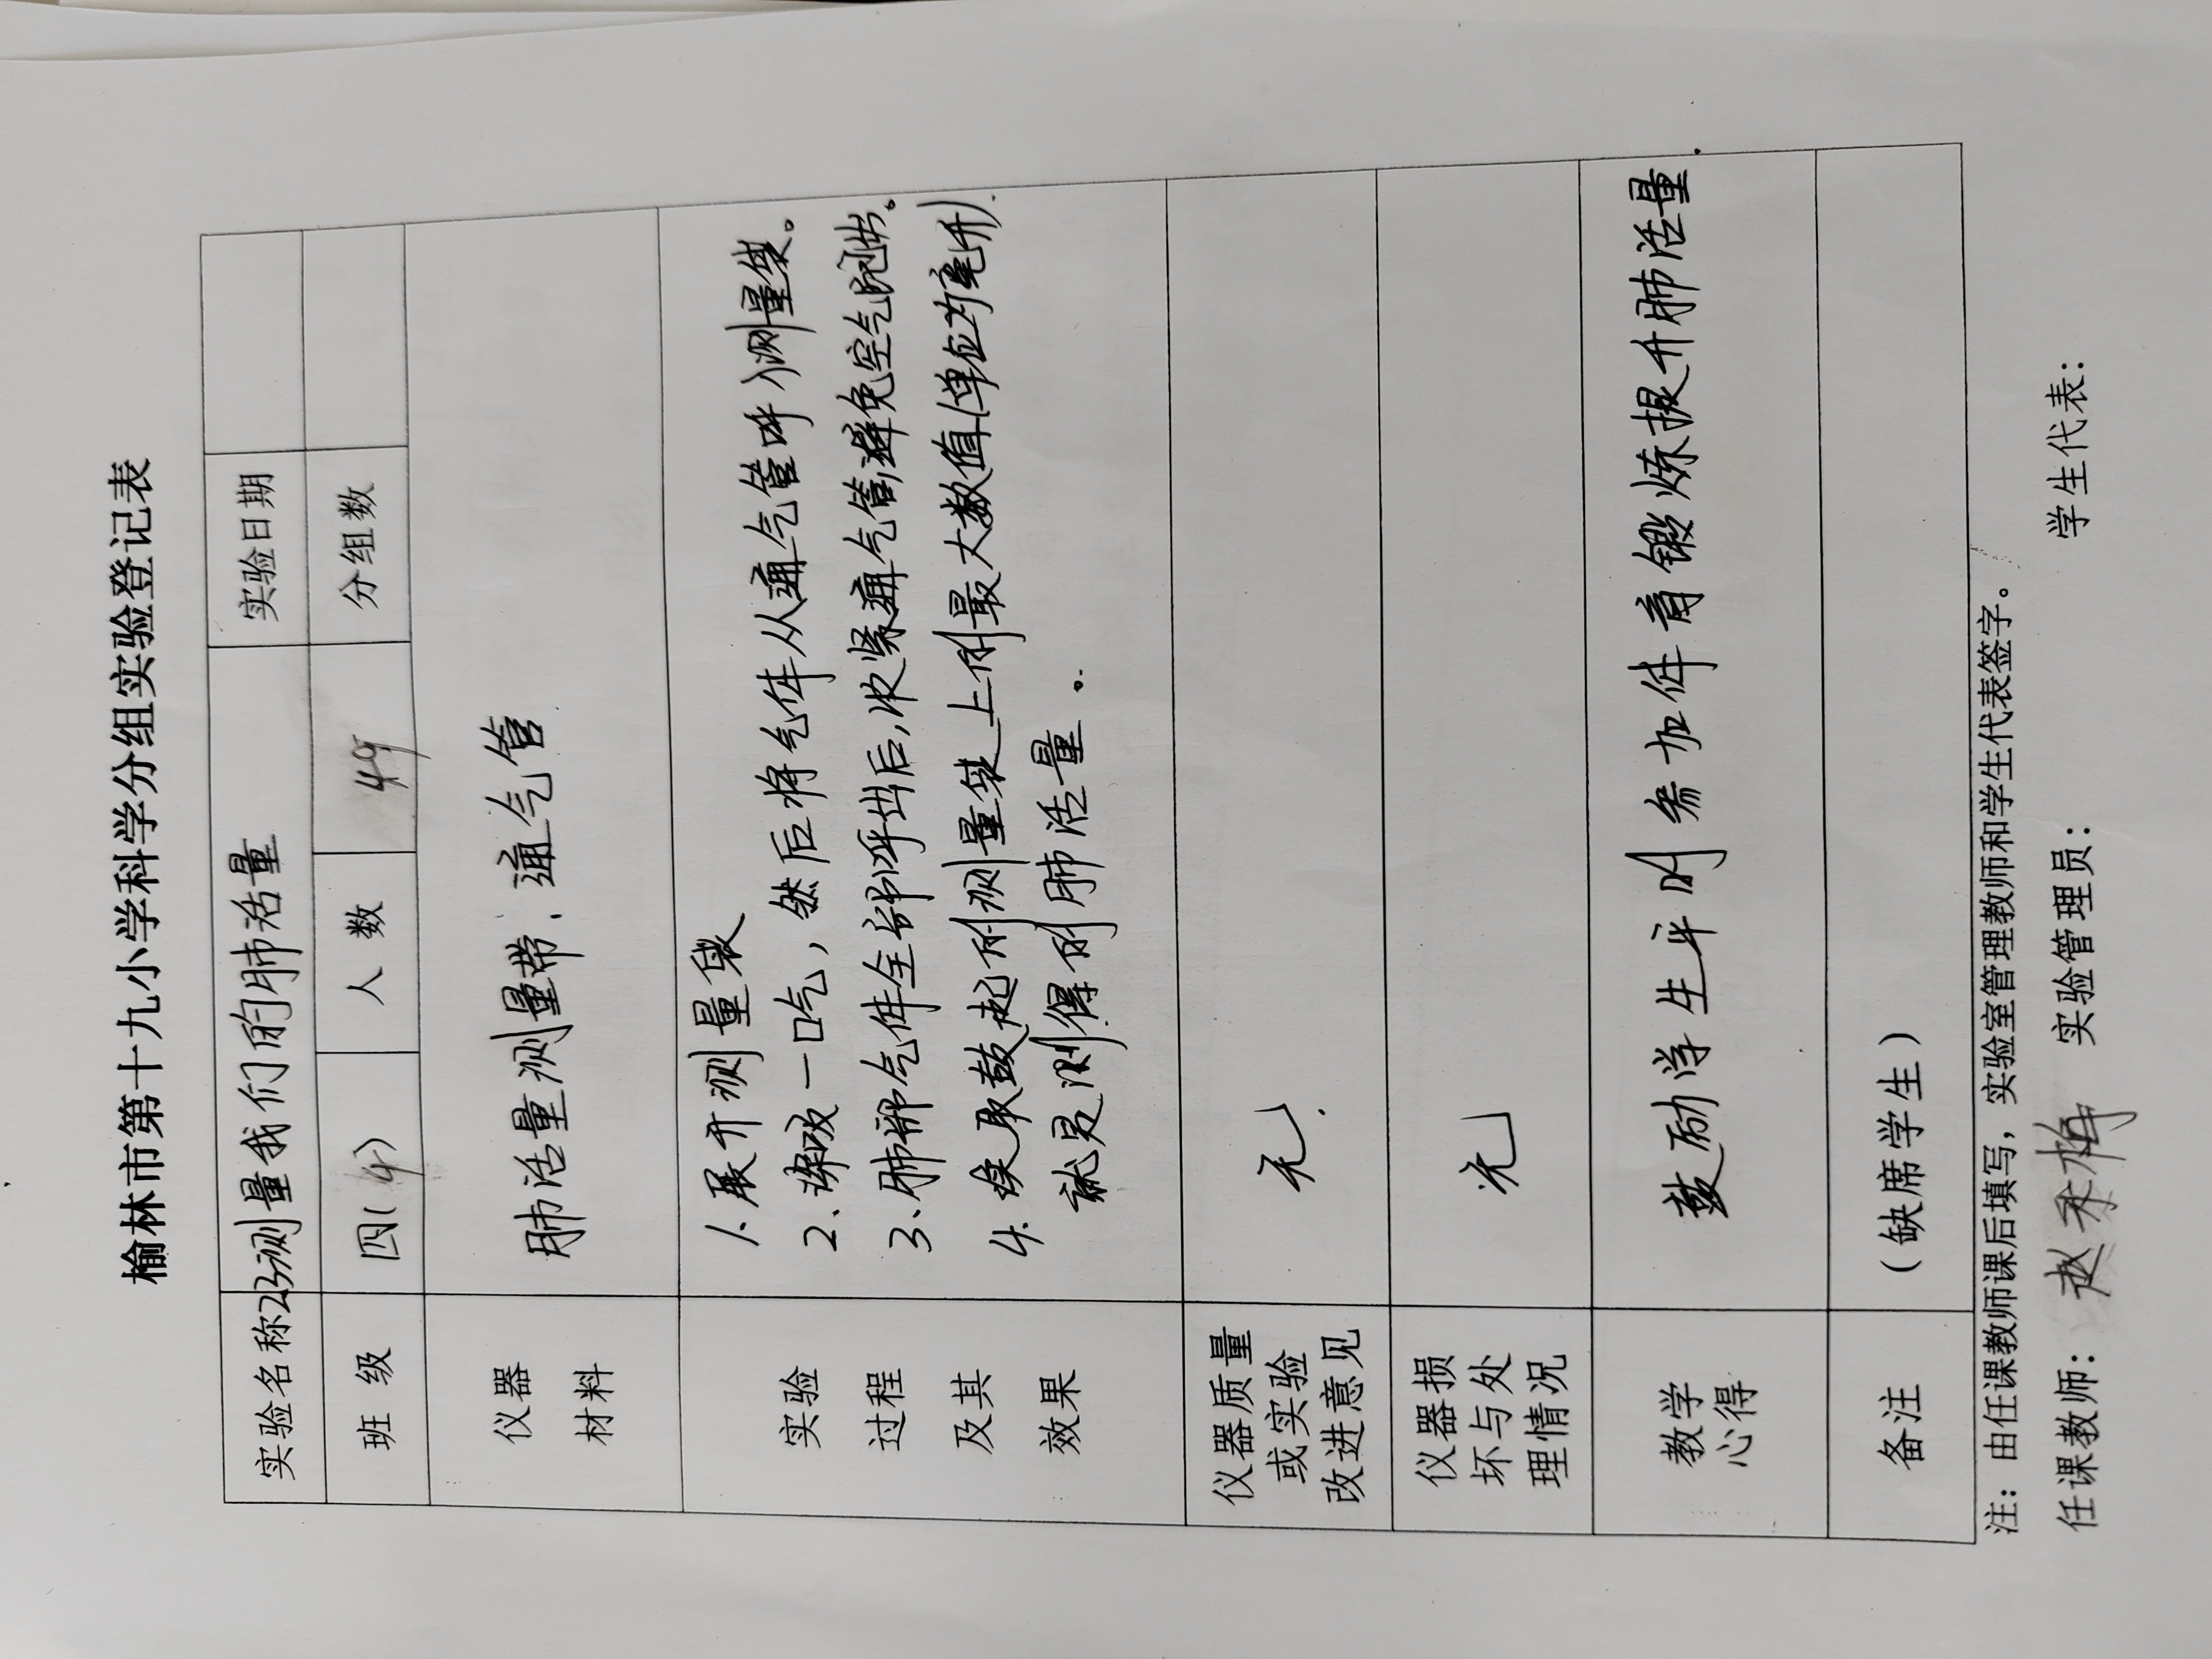 榆林市第十九小学科学分组实验登记表
实验名称 2.3测量我们的肺活量 实验日期
班 级 四(4) 人 数 49 分组数
仪器
材料
肺活量测量带、通气管
实验
过程
及其
效果
1、展开测量袋
2、深吸一口气，然后将气体从通气管呼入测量袋。
3、肺部气体全部呼出后，收紧通气管，避免空气跑出。
4、读取鼓起的测量袋上的最大数值(单位为毫升)
就是测得的肺活量。
仪器质量
或实验
改进意见
无
仪器损
坏与处
理情况
无
教学
心得
鼓励学生平时参加体育锻炼提升肺活量
备注
（缺席学生）
注：由任课教师课后填写，实验室管理教师和学生代表签字。
任课教师：赵 梅 实验管理员： 学生代表：